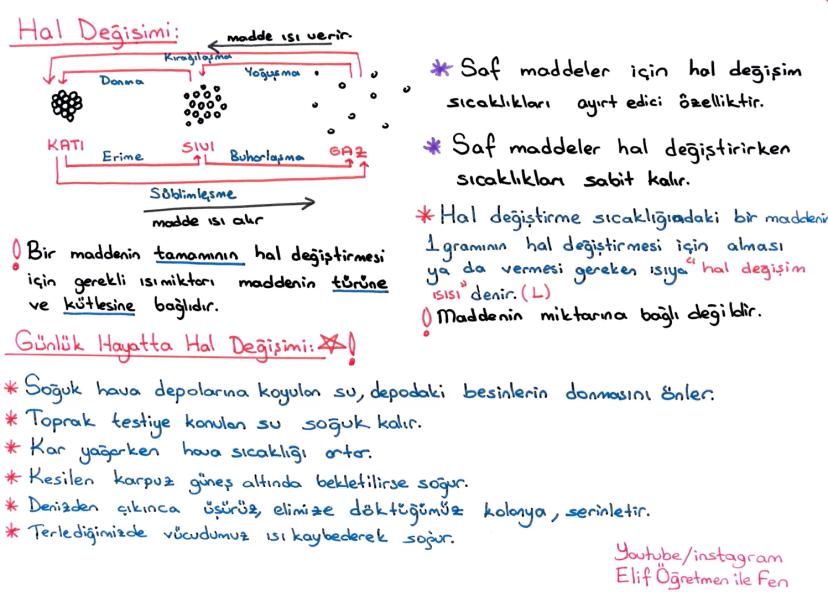 Hal Değişimi:
madde ısı verir.
Kırağılaşma
Donma
Yoğuşma
KATI
SIVI
GAZ
Erime
Buharlaşma
Süblimleşme
madde ısı alır
! Bir maddenin tamamının hal değiştirmesi
için gerekli ısı miktarı maddenin türüne
ve kütlesine bağlıdır.
* Saf maddeler için hal değişim
sıcaklıkları ayırt edici özelliktir.
* Saf maddeler hal değiştirirken
sıcaklıkları sabit kalır.
* Hal değiştirme sıcaklığındaki bir maddenin
1 gramının hal değiştirmesi için alması
ya da vermesi gereken ısıya "hal değişim
ısısı" denir. (L)
! Maddenin miktarına bağlı değildir.
Günlük Hayatta Hal Değişimi: !
* Soğuk hava depolarına koyulan su, depodaki besinlerin donmasını önler.
* Toprak testiye konulan su soğuk kalır.
* Kar yağarken hava sıcaklığı artar.
* Kesilen karpuz güneş altında bekletilirse soğur.
* Denizden çıkınca üşürüz, elimize döktüğümüz kolonya, serinletir.
* Terlediğimizde vücudumuz ısı kaybederek soğur.
Youtube/instagram
Elif Öğretmen ile Fen